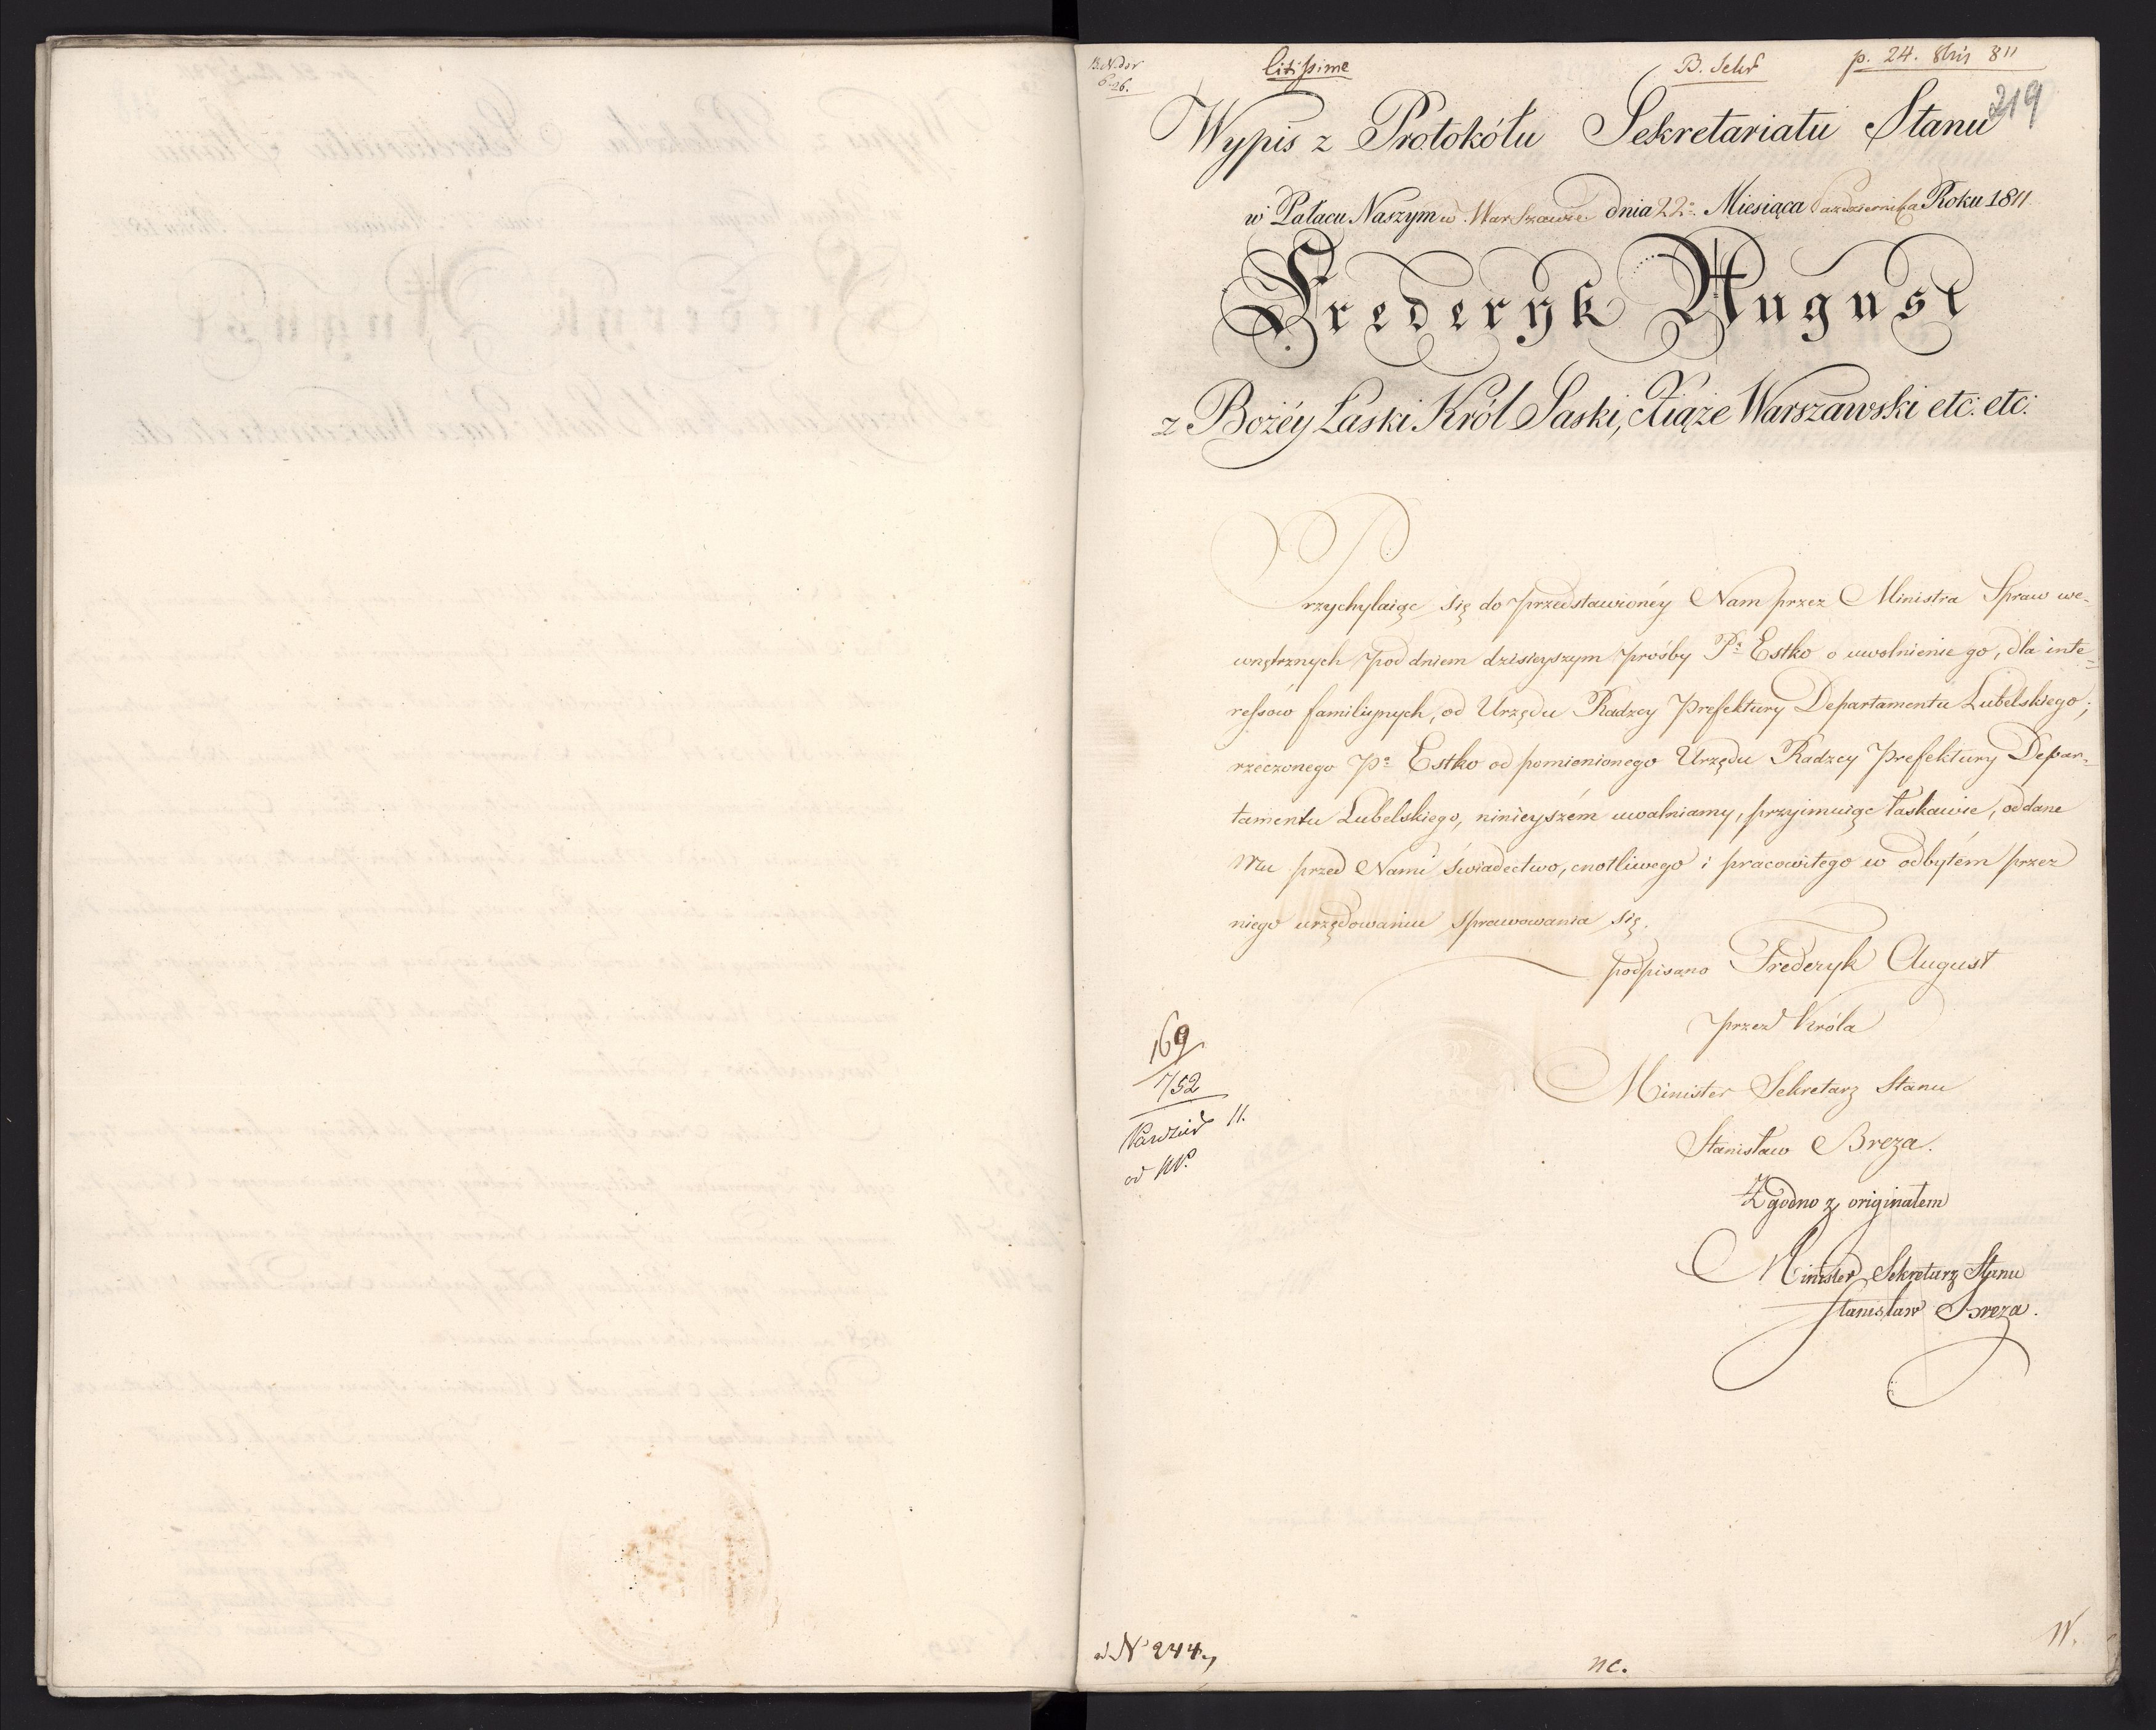 citissime
B. Sekr
p. 24. 8bris 811
219
Wypis z Protokółu Sekretariatu Stanu
w Pałacu Naszym w Warszawie dnia 22º Miesiąca Października Roku 1811
Frederyk August
z Bożéy Łaski Król Saski, Xiąże Warszawski etc: etc:
Przychylaiąc się do przedstawionéy Nam przez Ministra Spraw we-
wnętrznych pod dniem dzisieyszym prośby Pa Estko o uwolnienie go, dla inte=
ressów familiynych, od Urzędu Radzcy Prefektury Departamentu Lubelskiego;
rzeczonego Pa Estko od pomienionego Urzędu Radzcy Prefektury Depar-
tamentu Lubelskiego, ninieyszém uwalniamy, przyimuiąc łaskawie, oddane
Mu przed Nami świadectwo, cnotliwego i pracowitego w odbytém przez
niego urzędowaniu sprawowania się.
podpisano Frederyk August
przez Króla
Minister Sekretarz Stanu
Stanisław Breza.
Zgodno z originałem
Minister Sekretarz Stanu
Stanisław Breza.
169
752
Paździer 11.
ad N 244.
nc.